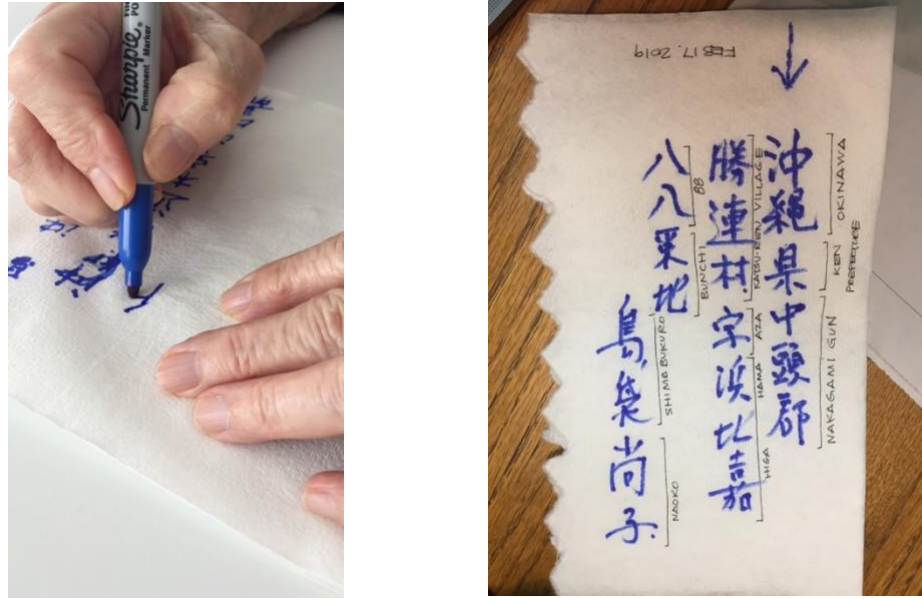 Sharpie
Permanent Marker
沖縄県中頭郡
OKINAWA
KEN
PREFECTURE
NAKAGAMI GUN
勝連村字浜比嘉
VILLAGE
AZA
HAMA
HIGA
八八番地
88
BUNCHI
島袋尚子
SHIMABUKURO
NAOKO
FEB 17. 2019